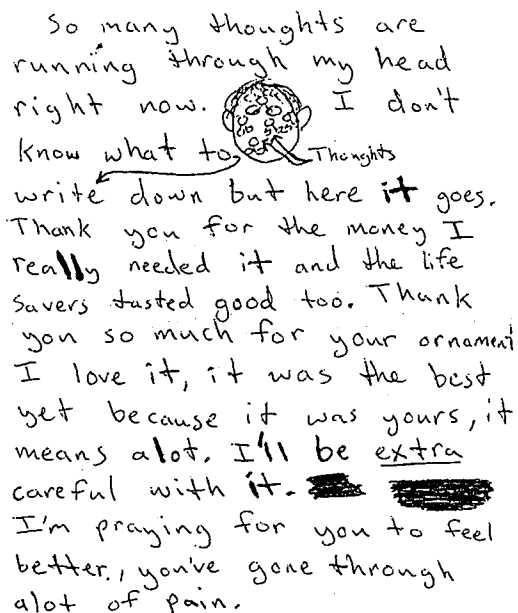 So many thoughts are
running through my head
right now. I don't
know what to Thoughts
write down but here it goes.
Thank you for the money I
really needed it and the life
savers tasted good too. Thank
you so much for your ornament
I love it, it was the best
yet because it was yours, it
means alot. I'll be extra
careful with it.
I'm praying for you to feel
better., you've gone through
alot of pain.